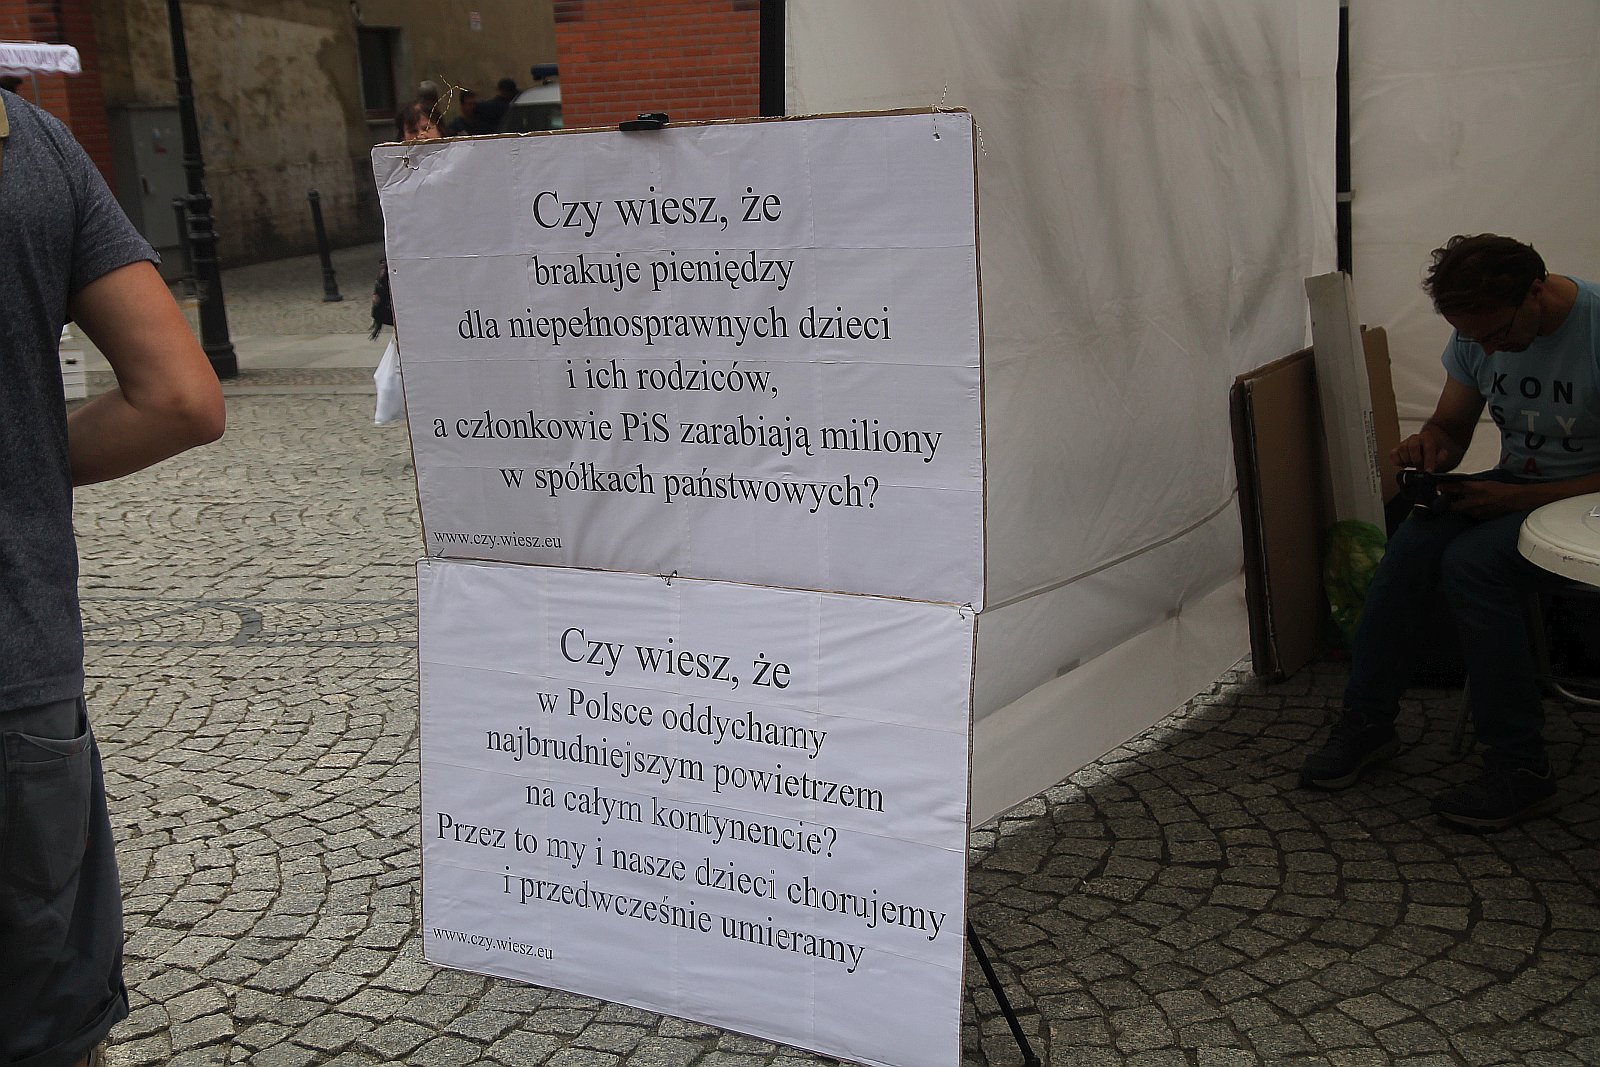 Czy wiesz, że
brakuje pieniędzy
dla niepełnosprawnych dzieci
i ich rodziców,
a członkowie PiS zarabiają miliony
w spółkach państwowych?
www.czy.wiesz.eu
Czy wiesz, że
w Polsce oddychamy
najbrudniejszym powietrzem
na całym kontynencie?
Przez to my i nasze dzieci chorujemy
i przedwcześnie umieramy
www.czy.wiesz.eu
KON
STY
TUC
JA